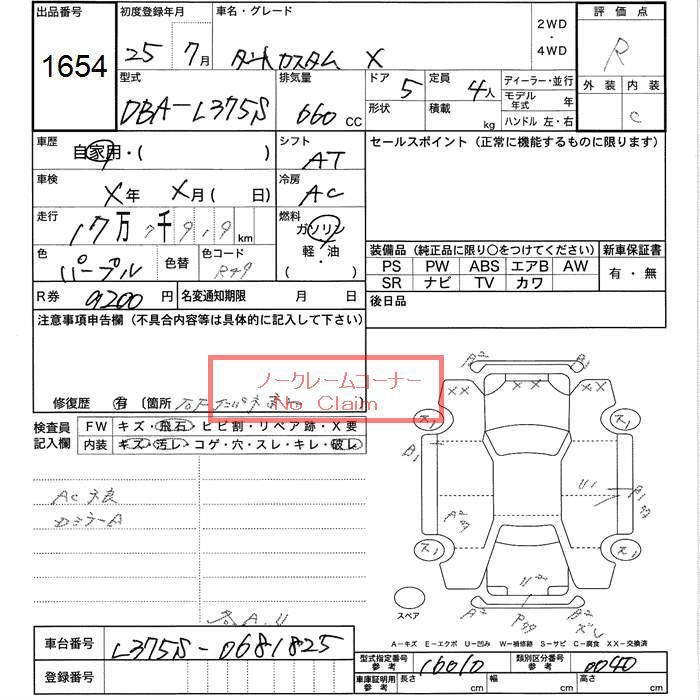 出品番号 初度登録年月 車名・グレード 2WD・4WD 評価点
1654 25年 7月 タントカスタム X R
型式 排気量 ドア 定員 ディーラー・並行 外装 内装
DBA-L375S 660 CC 5 4人 モデル年式 年 C
形状 積載 kg ハンドル 左・右
車歴 自家用・( ) シフト AT セールスポイント (正常に機能するものに限ります)
車検 X年 X月 ( 日) 冷房 AC
走行 17万7千919 km 燃料 ガソリン
軽・油
( )
色 パープル 色替 色コード R49 装備品 (純正品に限り○をつけてください) 新車保証書
PS PW ABS エアB AW 有・無
SR ナビ TV カワ
R券 9200円 名変通知期限 月 日 後日品
注意事項申告欄 (不具合内容等は具体的に記入して下さい)
ノークレームコーナー
No Claim
修復歴 有 〔箇所
検査員記入欄 FW キズ・飛石・ヒビ割・リペア跡・X要
内装 キズ・汚レ・コゲ・穴・スレ・キレ・破レ
AC不良
A2
XX XX
ス1 ス1
B1
U1
A1
A2
ス1 ス1
U2
スペア
A2 P99 B2
A-キズ E-エクボ U-凹み W-補修跡 S-サビ C-腐食 XX-交換済
車台番号 L375S-0681825
型式指定番号 参考 16010 類別区分番号 参考 0040
登録番号 車庫証明用 参考 長さ cm 幅 cm 高さ cm